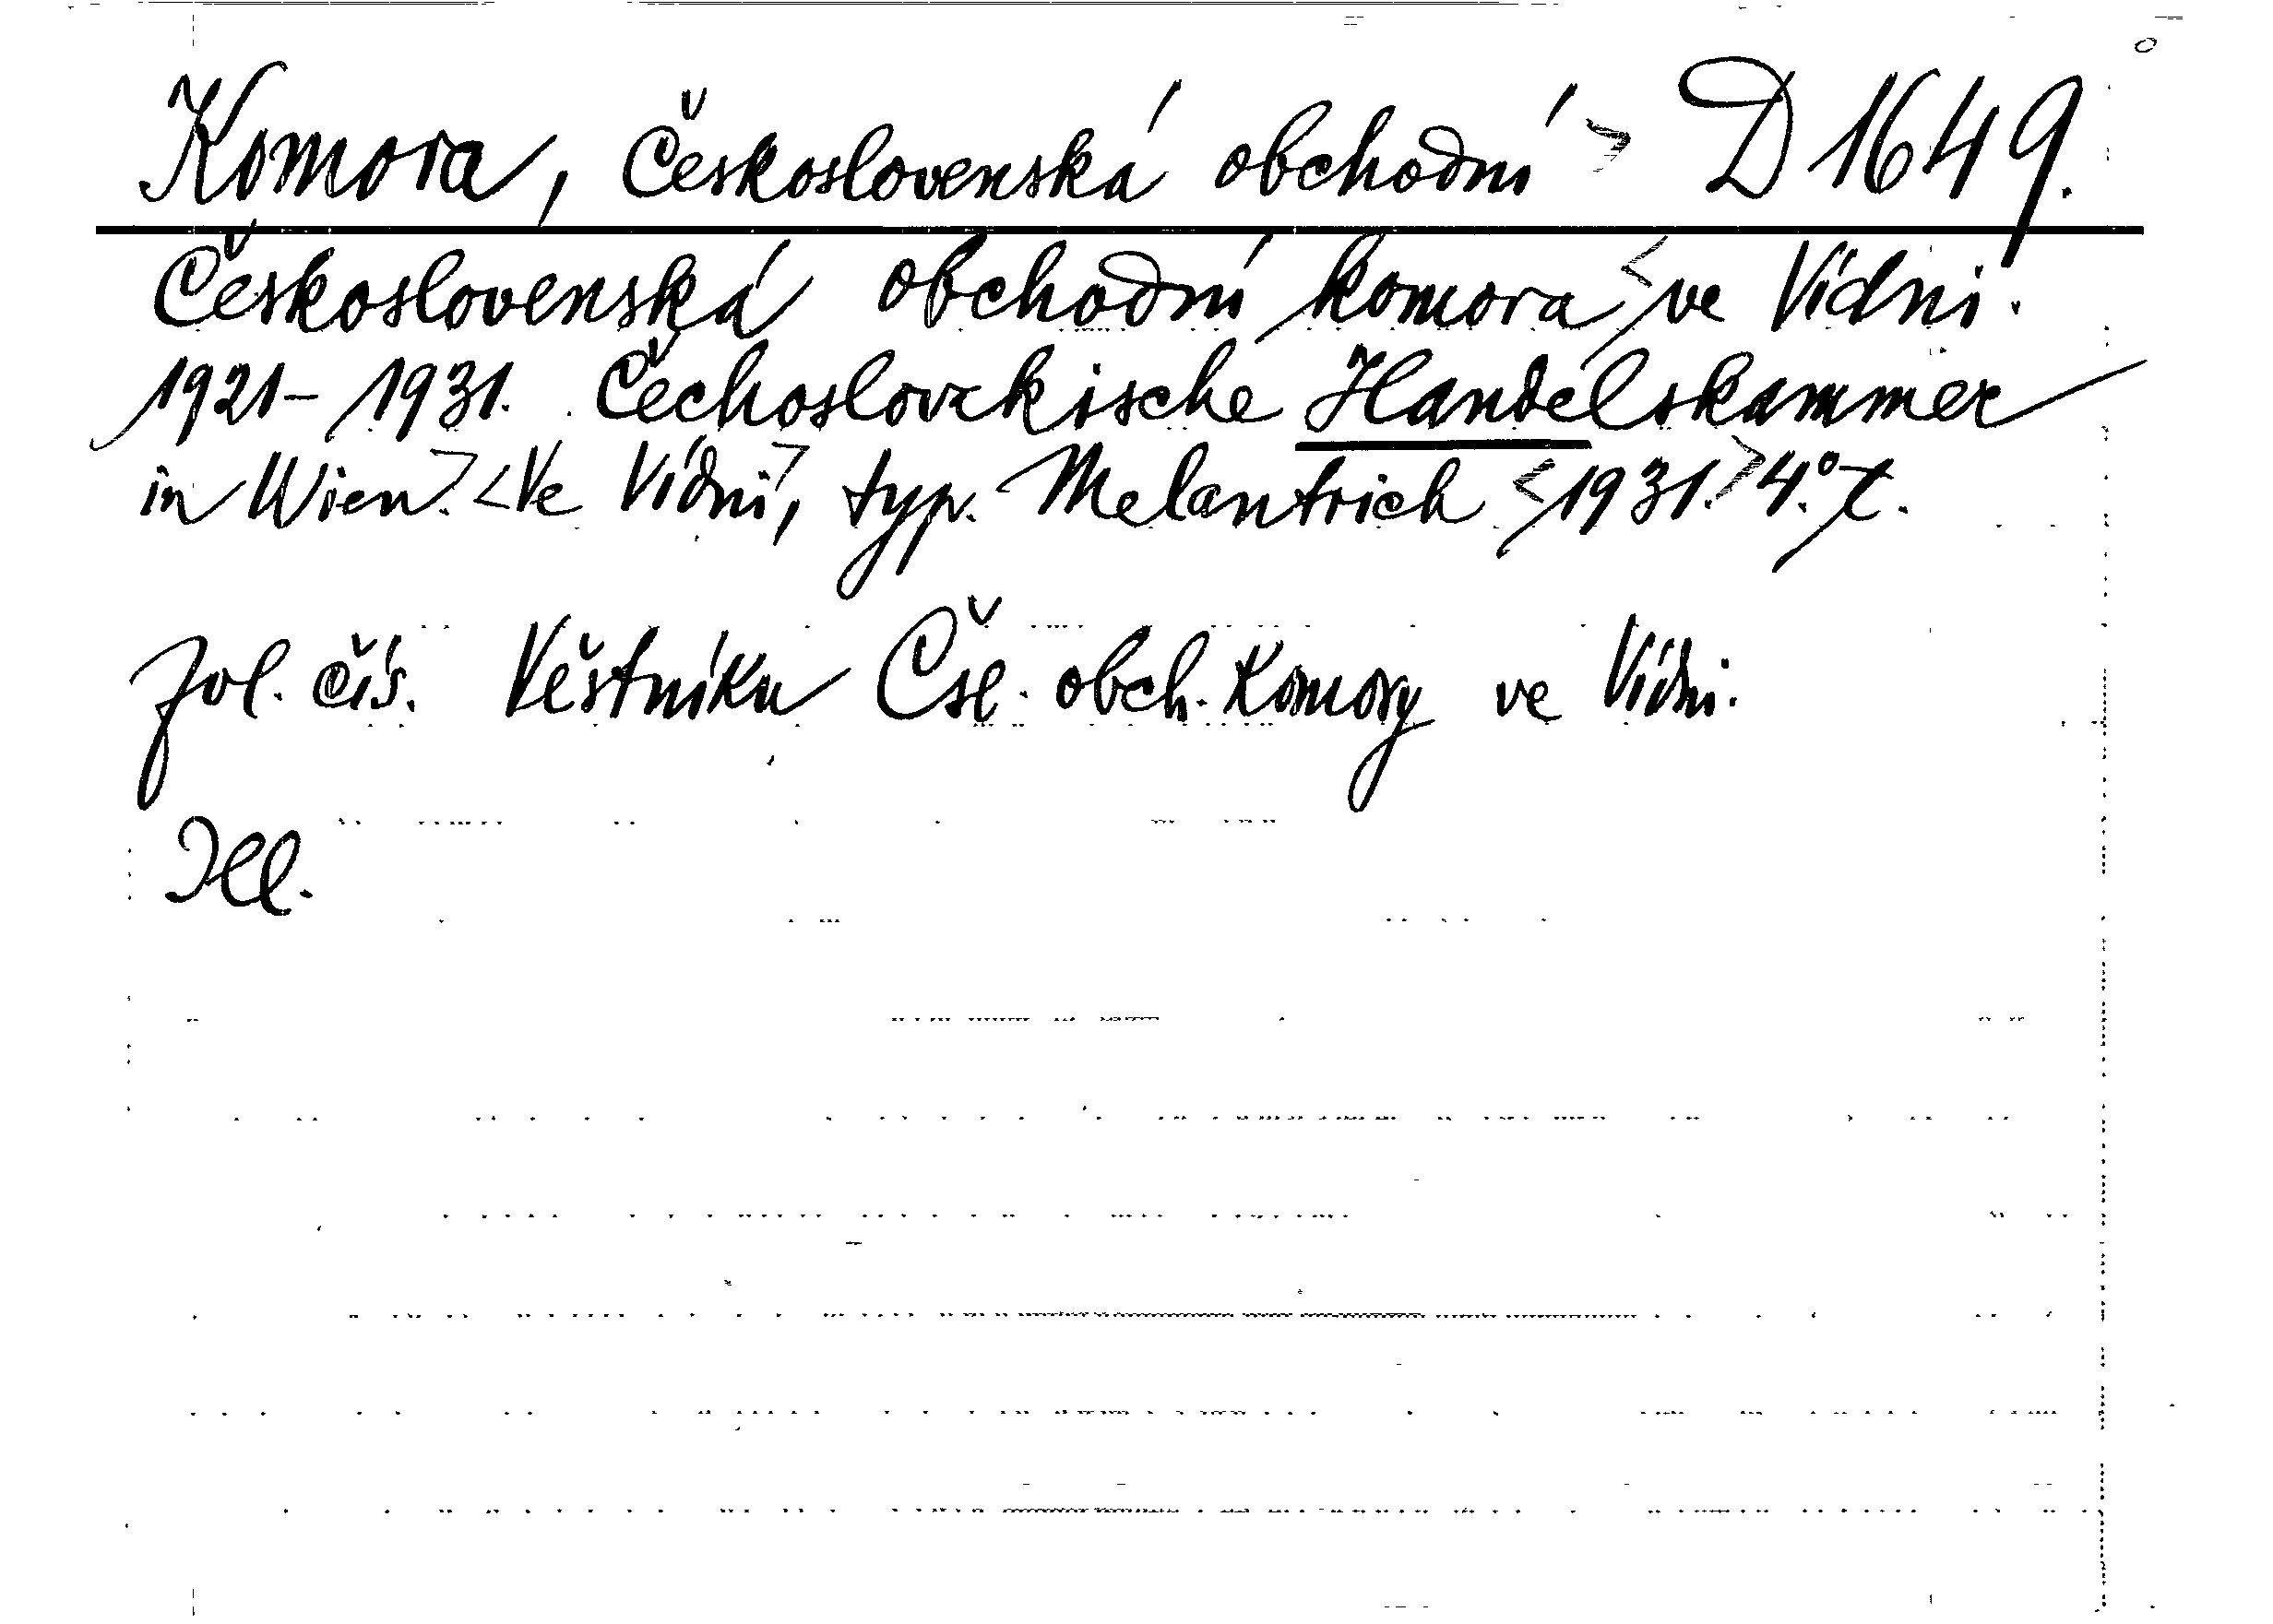 Komora, Československá obchodní > D 1649.
Československá obchodní komora < ve Vídni.
1921-1931. Čechoslovakische Handelskammer
in Wien.> <Ve Vídni>, typ. Melantrich <1931.> 4.° t.
zvl. čís. Věstníku Čsl. obch. Komory ve Vídni.
Ill.